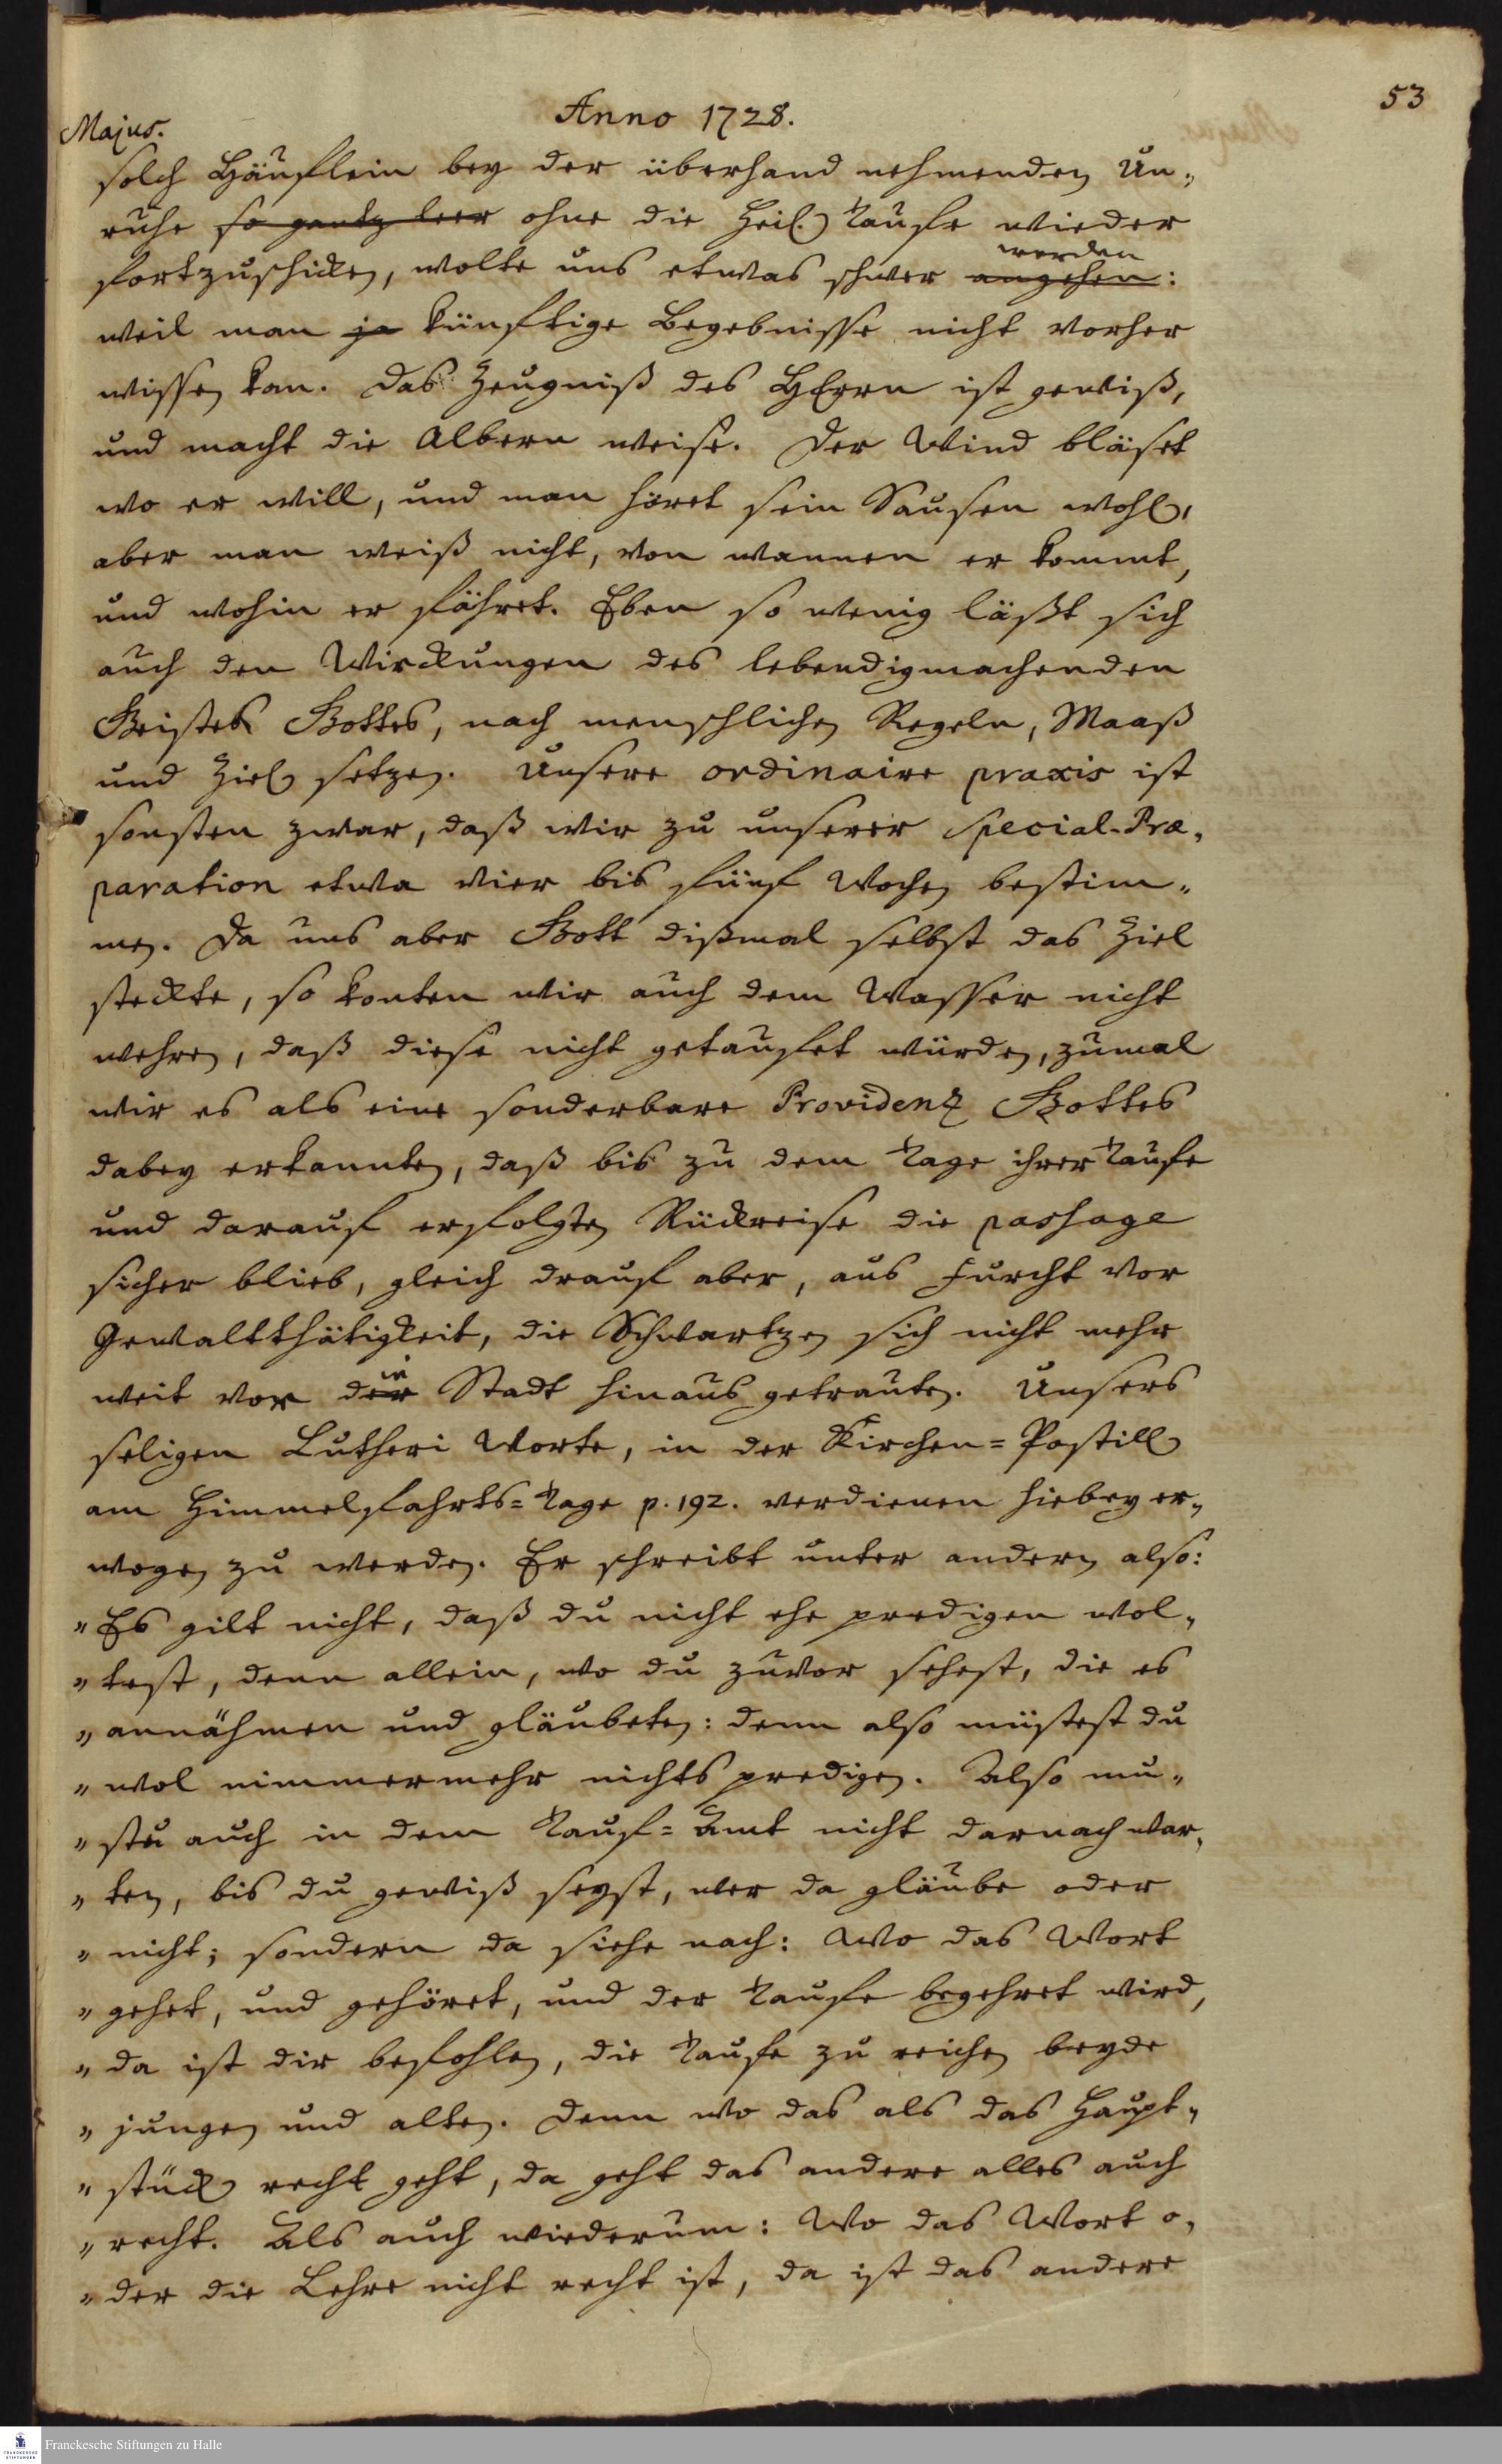 53
Anno 1728.
Majus.
solch Häuflein bey der überhand nehmenden Un-
ruhe so gantz leer ohne die Heil. Taufe wieder
werden
fortzuschicken, wolte uns etwas schwer angehen:
weil man ja künftige Begebnisse nicht vorher
wissen kan. Das Zeugniß des HErrn ist gewiß,
und macht die Albern weise. Der Wind bläset
wo er will, und man höret sein Sausen wohl,
aber man weiß nicht, von wannen er kommt,
und wohin er fähret. Eben so wenig läßt sich
auch den Wirckungen des lebendigmachenden
Geistes Gottes, nach menschlichen Regeln, Maaß
und Ziel setzen. Unsere ordinaire praxis ist
sonsten zwar, daß wir zu unserer Special-Præ-
paration etwa vier bis fünf Wochen bestim-
men. Da uns aber Gott dißmal selbst das Ziel
steckte, so konten wir auch dem Wasser nicht
wehren, daß diese nicht getaufet würden, zumal
wir es als eine sonderbare Providenz Gottes
dabey erkannten, daß bis zu dem Tage ihrer Taufe
und darauf erfolgten Rückreise die passage
sicher blieb, gleich drauf aber, aus Furcht vor
Gewaltthätigkeit, die Schwartzen sich nicht mehr
ie
weit vor der Stadt hinaus getrauten. Unsers
seligen Lutheri Worte, in der Kirchen=Postill
am Himmelfahrts=Tage p. 192. verdienen hiebey er-
wogen zu werden. Er schreibt unter andern also:
" Es gilt nicht, daß du nicht ehe predigen wol-
" test, denn allein, wo du zuvor sehest, die es
" annähmen und gläubeten: denn also müstest du
" wol nimmermehr nichts predigen. Also mu-
" stu auch in dem Tauf=Amt nicht darnach war-
" ten, bis du gewiß seyst, wer da gläube oder
" nicht; sondern da siehe nach: Wo das Wort
" gehet, und gehöret, und der Taufe begehret wird,
" da ist dir befohlen, die Taufe zu reichen beyde
" jungen und alten. Denn wo das als das Haupt-
" stück recht geht, da geht das andere alles auch
" recht. Als auch wiederum: Wo das Wort o-
" der die Lehre nicht recht ist, da ist das andere
FRANCKESCHE
STIFTUNGEN
Franckesche Stiftungen zu Halle